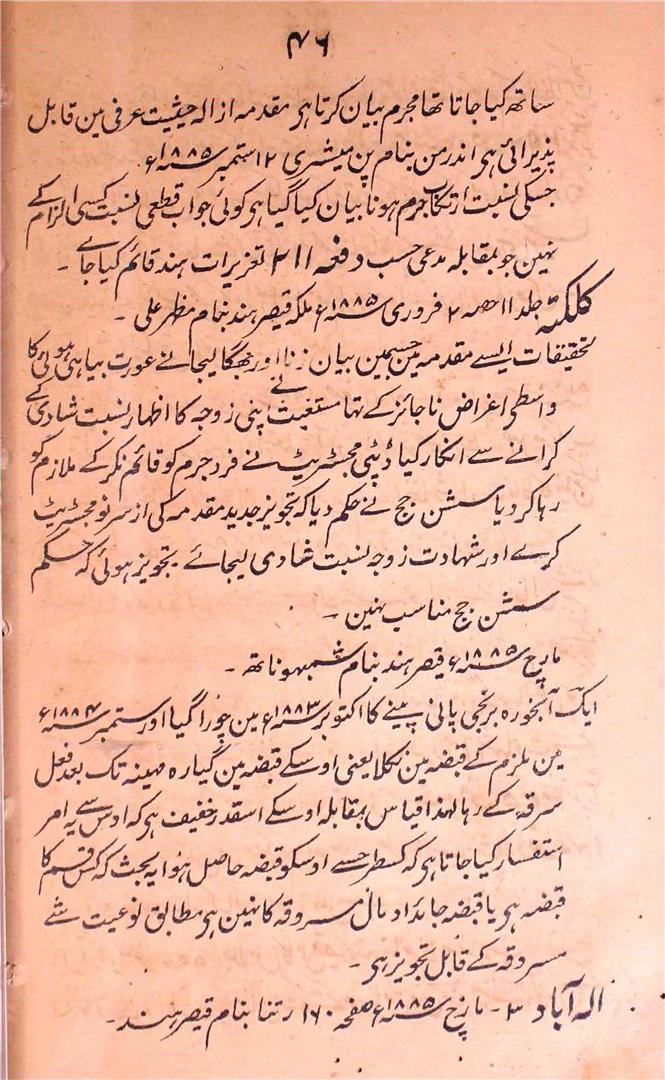 ۴۶
ساتھ کیا جاتا تھا مجرم بیان کرتا ہر مقدمہ ازالہ حیثیت عرفی مین قابل
پذیرائی ہر اندرمن بنام پن میشری ۱۲ ستمبر ۱۸۸۵ء
جسکی نسبت ارتکاب جرم ہونا بیان کیا گیا ہر کوئی جواب قطعی نسبت کسی الزام کے
نہین جو بمقابلہ مدعی حسب دفعہ ۲۱۱ تعزیرات ہند قائم کیا جاے ۔
کلکتہ جلد ۱۱ حصہ ۲ فروری ۱۸۸۵ء ملکہ قیصر ہند بنام مظہر علی ۔
تحقیقات ایسے مقدمہ مین جسمین بیان زنا اور بھگا لیجانے عورت بیاہی ہوئی کا
واسطی اغراض ناجائز کے تہا مستغیث نے اپنی زوجہ کا اظہار نسبت شادی کے
کرانے سے انکار کیا ڈپٹی مجسٹریٹ نے فرد جرم کو قائم نکر کے ملازم کو
رہا کر دیا سشن جج نے حکم دیا کہ تجویز جدید مقدمہ کی از سر نو مجسٹریٹ
کرے اور شہادت زوجہ نسبت شادی لیجائے ۔ تجویز ہوئی کہ حکم
سشن جج مناسب نہین ۔
مارچ ۱۸۸۵ء قیصر ہند بنام شمبہوناتھ ۔
ایک آبخورہ برنجی پانی پینے کا اکتوبر ۱۸۸۳ء مین چورا گیا اور ستمبر ۱۸۸۴ء
مین ملزم کے قبضہ مین نکلا یعنی اوسکے قبضہ مین گیارہ مہینہ تک بعد فعل
سرقہ کے رہا لہذا قیاس بمقابلہ اوسکے اسقدر خفیف ہر کہ اوس سے یہ امر
استفسار کیا جاتا ہر کہ کسطرحسے اوسکو قبضہ حاصل ہوا یہ بحث کہ کس قسم کا
قبضہ ہر یا قبضہ جائداد مال مسروقہ کا نہین ہر مطابق نوعیت شے
مسروقہ کے قابل تجویز ہر ۔
الہ آباد ۳ ۔ مارچ ۱۸۸۵ء صفحہ ۱۶۰ رتنا بنام قیصر ہند ۔